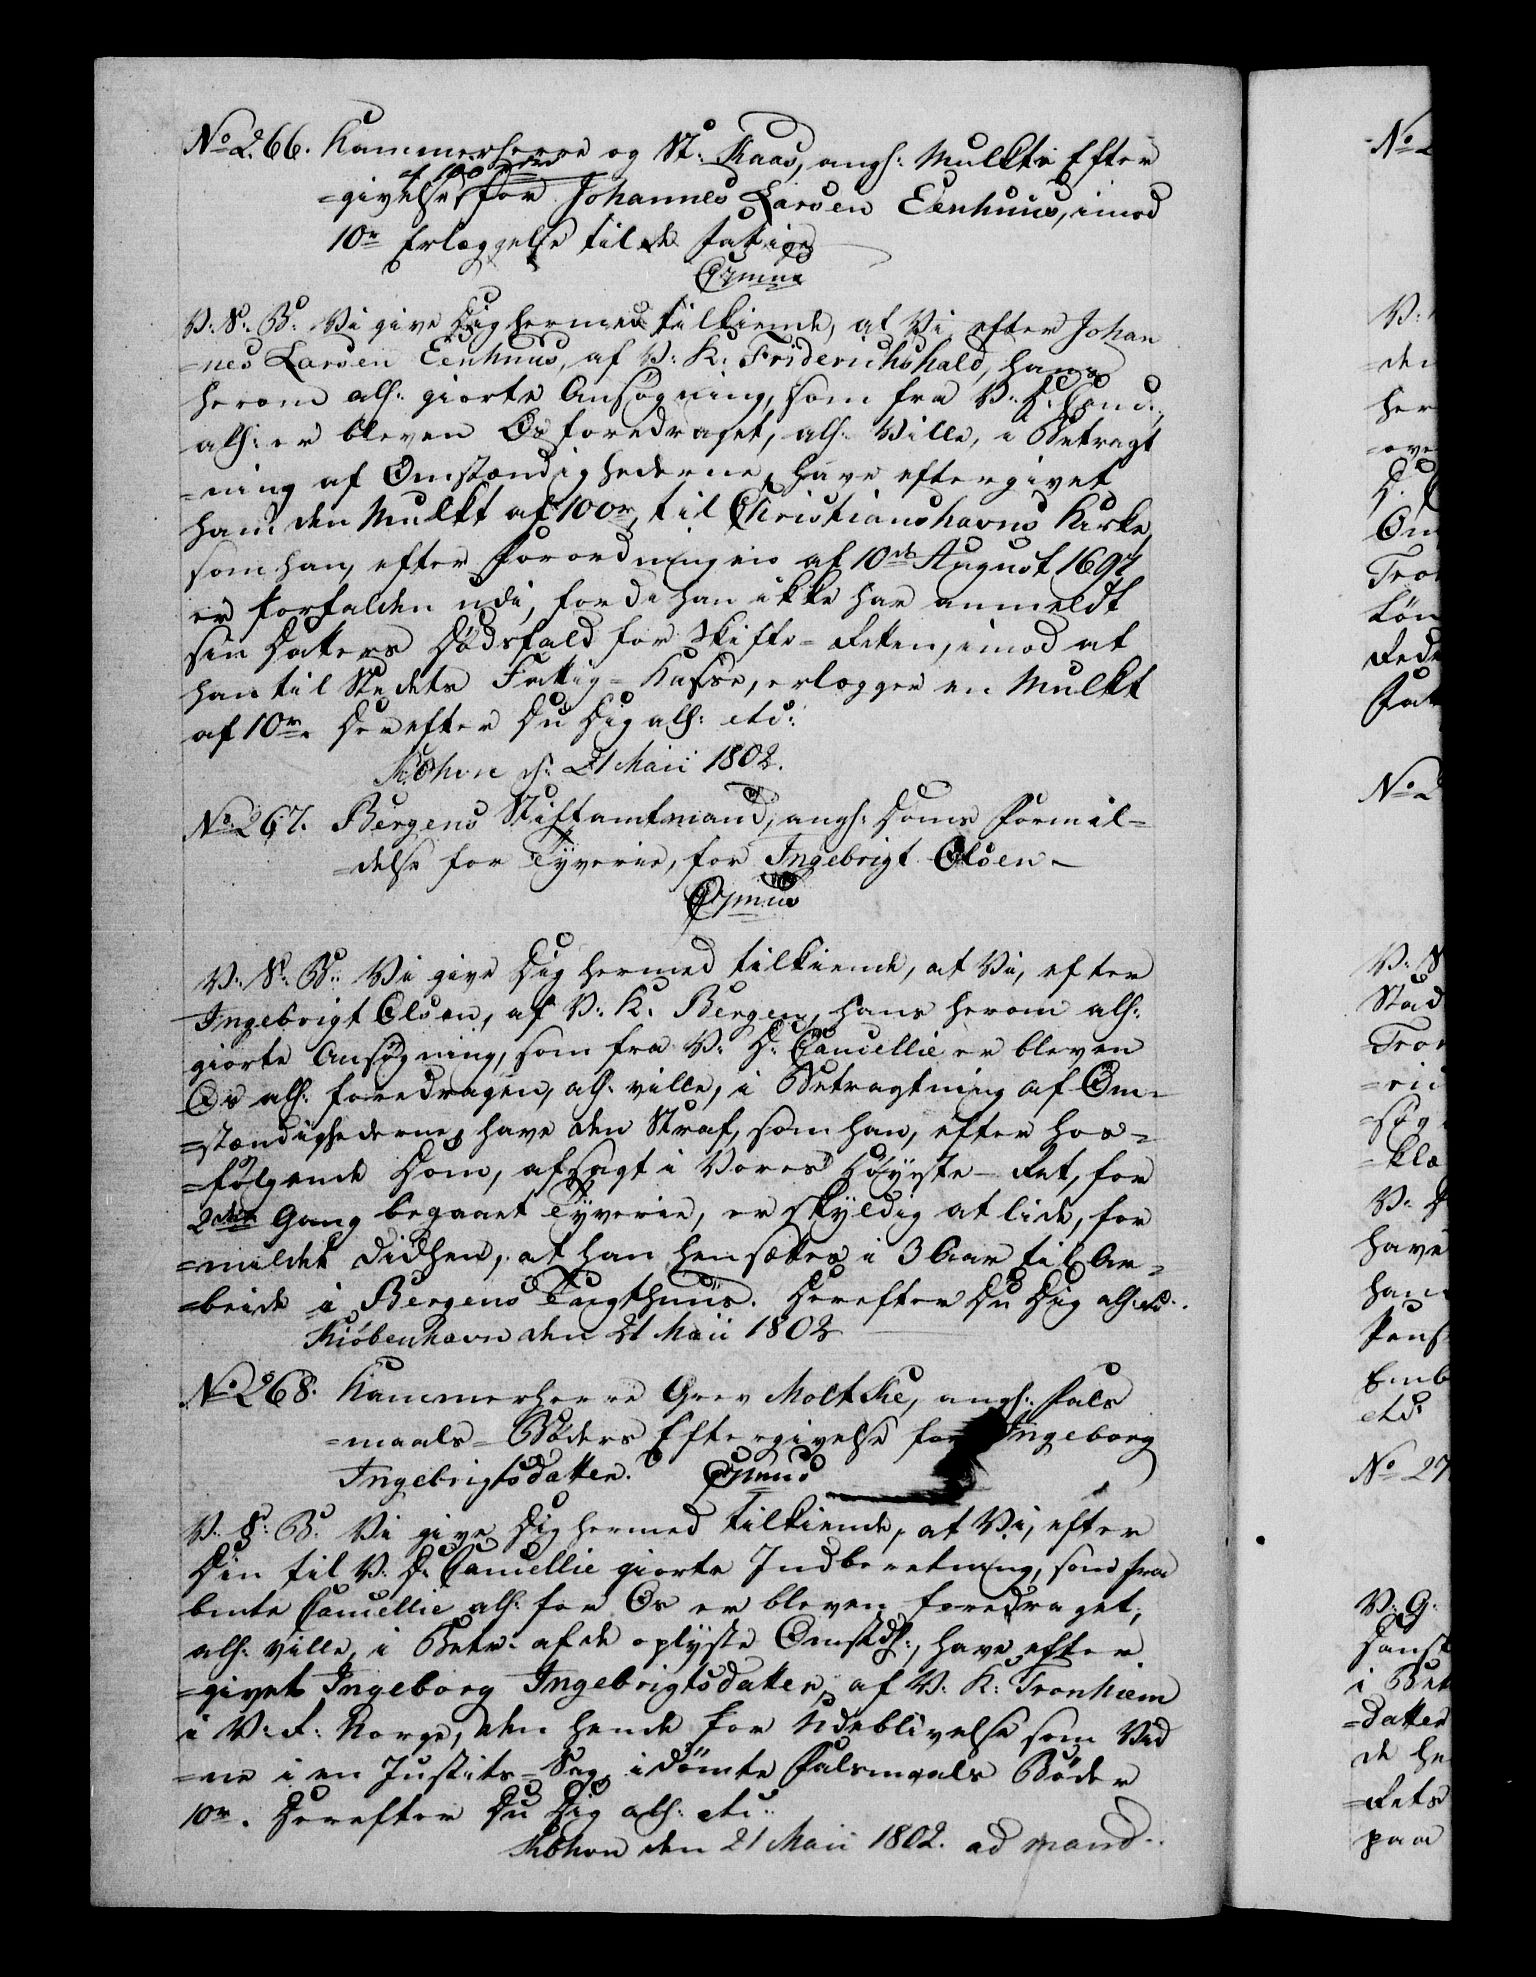 No 266. Kammerherre og St: Kaas, angl: Mulkts Efter
af 100 rdr
=givelse, for Johannes Larsen Eenhuus, imod
10r Erlæggelse til de fattige
C7mus
V: S: B: Vi give Dig hermed tilkiende, at Vi, efter Johan
=nes Larsen Eenhuus, af V: K: Friderichshald, hans
herom all: giorte Ansøgning, som fra V: D: Canc:,
all: er bleven Os foredraget, all: Ville, i Betragt
=ning af Omstændighederne, have eftergivet
ham den Mulkt af 100r, til Christianshavns Kirke,
som han, efter Forordningen af 10de August 1697
er forfalden udi, fordi han ikke har anmeldt
sin Datters Dødsfald for Skifte=Retten, imod at
han til Stedets Fattig=Kasse, erlægger en Mulkt
af 10r. Derefter Du Dig all: etc:
Kbhvn d: 21 Maii 1802.
No 267. Bergens Stiftamtmand, angl: Doms Formil=
=delse for Tyverie, for Ingebrigt Olsen
C7mus
V: S: B: Vi give Dig hermed tilkiende, at Vi, efter
Ingebrigt Olsen, af V: K: Bergen, hans herom all:
giorte Ansøgning, som fra V: D: Cancellie er bleven
Os all: foredragen, all: ville, i Betragtning af Om=
=stændighederne, have den Straf, som han, efter hos=
=følgende Dom, afsagt i Vores Høyeste=Ret, for
2den Gang begaaet Tyverie, er skyldig at lide, for
=mildet didhen, at han hensættes i 3 Aar til Ar=
=beide i Bergens Tugthuus. Derefter Du Dig all: etc:
Kiøbenhavn den 21 Maii 1802
No 268. Kammerherre Grev Moltke, angl: Fals
=maals=Bøders Eftergivelse for Ingeborg
Ingebrigtsdatter. C7mus
V: S: B: Vi give Dig hermed tilkiende, at Vi, efter
Din til V: D: Cancellie giorte Indberetning, som fra
bmte Cancellie all: for Os er bleven foredraget,
all: ville, i Betr: af de oplyste Omstdh:, have efter
=givet Ingeborg Ingebrigtsdatter, af V: K: Tronhiem
i V: R: Norge, den hende for Udeblivelse som Vid
=ne i en Justits=Sag, idömte Falsmaals Bøder
10r. Derefter Du Dig all: etc:
Kbhvn den 21 Maii 1802. ad mand:
No 2
V:
=den
her
=ove
D.
Om
Tron
Rede
No 2
V: S
Stad
Tron
=klæ
V: D
have
han
Pens
Emb
etc:
No 27
V: G:
Dansk
i Bet
=datter
de he
=Rets
paa